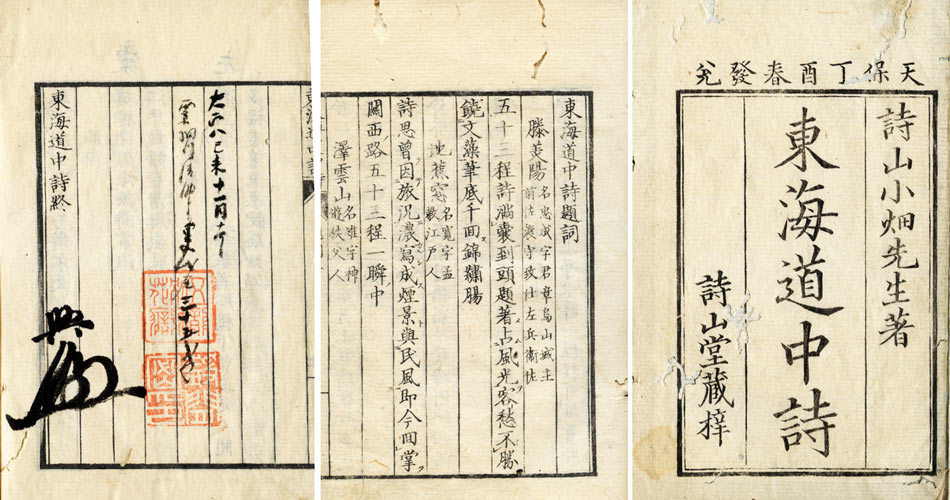 天保丁酉春發兌
詩山小畑先生著
東海道中詩
詩山堂藏梓
東海道中詩題詞
名忠成字君章烏山城主
致仕左兵衛佐
五十三程詩滿囊到頭題著占風光客愁不勝
饒文藻筆底千回錦繡腸
蕉窓
名寬字孟
江戶人
詩思曾因旅況濃寫成煙景與民風即今回掌
關西路五十三程一瞬中
澤雲山
名雄字神
大正八己未十一月
東海道中詩終